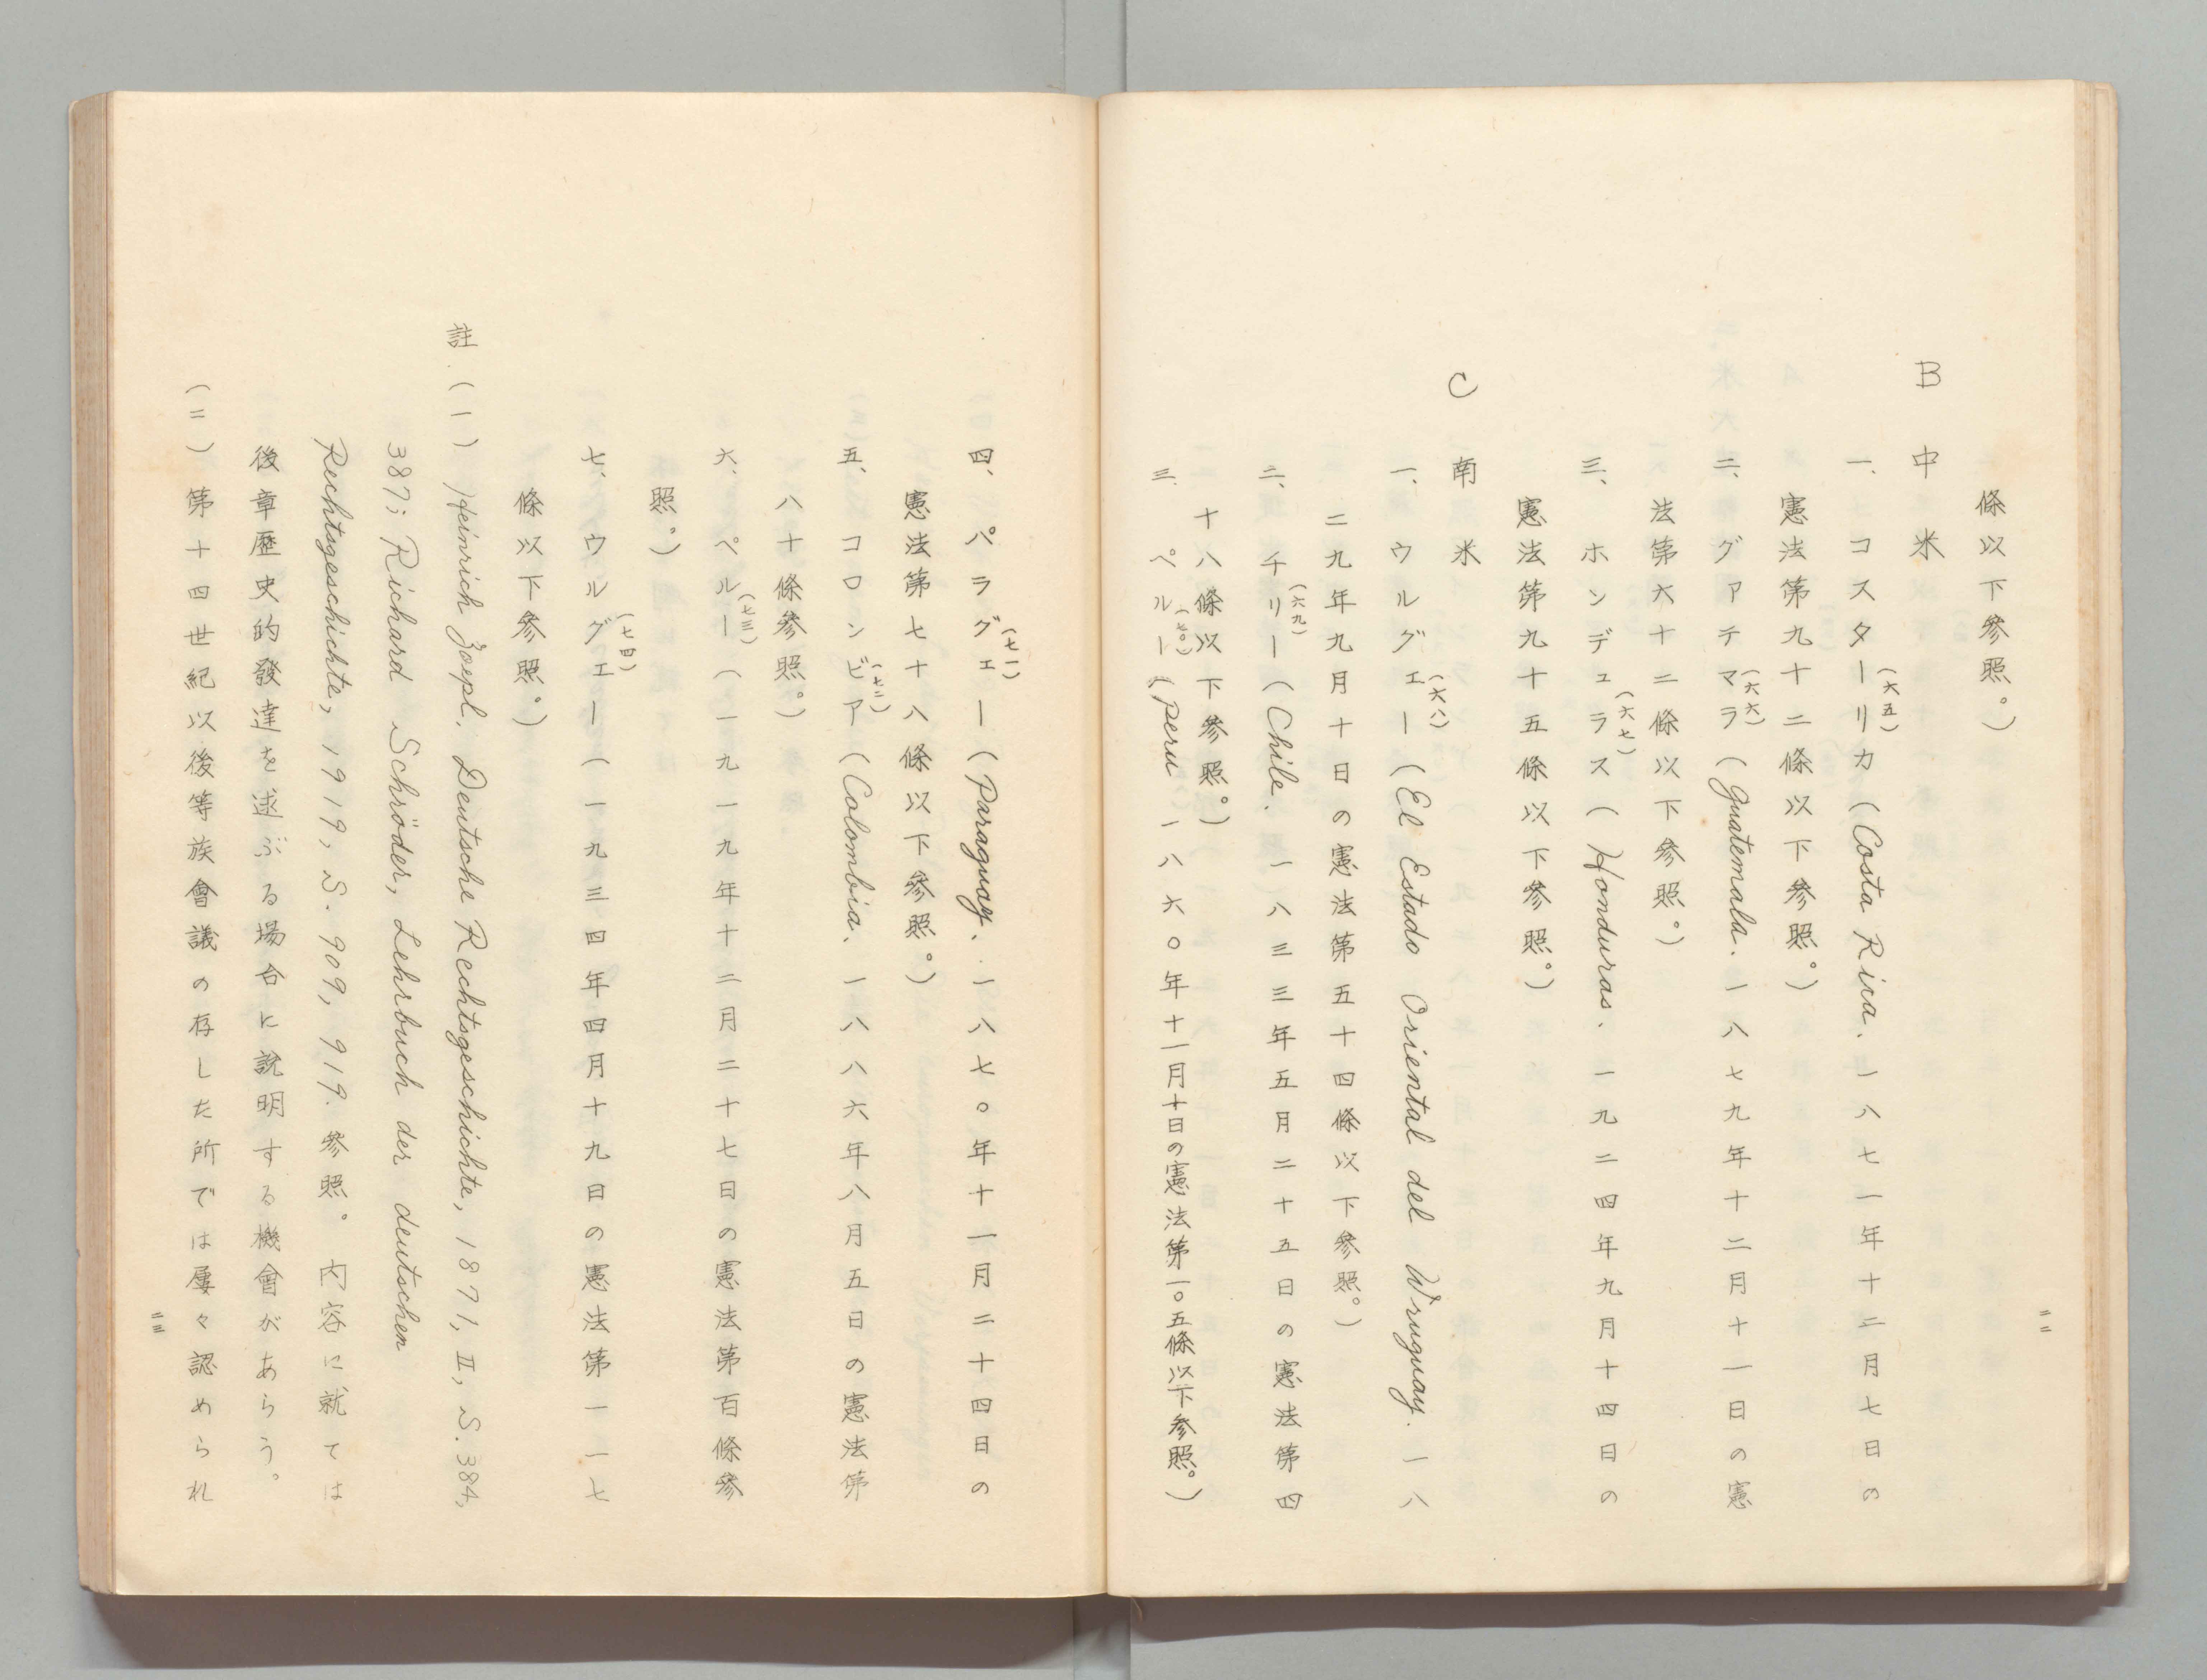 條以下參照。)
B 中米
一、コスターリカ(六五)(Costa Rica. 一八七一年十二月七日の
憲法第九十二條以下參照。)
二、グァテマラ(六六)(Guatemala. 一八七九年十二月十一日の憲
法第六十二條以下參照。)
三、ホンデュラス(六七)(Honduras. 一九二四年九月十四日の
憲法第九十五條以下參照。)
C 南米
一、ウルグエー(六八)(El Estado Oriental del Wruguay. 一八
二九年九月十日の憲法第五十四條以下參照。)
二、チリー(六九)(Chile. 一八三三年五月二十五日の憲法第四
十八條以下參照。)
三、ペルー(七〇)(Peru 一八六〇年十一月十日の憲法第一〇五條以下參照。)
二二
四、パラグェー(七一)(Paraguay. 一八七〇年十一月二十四日の
憲法第七十八條以下參照。)
五、コロンビア(七二)(Colombia. 一八八六年八月五日の憲法第
八十條參照。)
六、ペルー(七三)(一九一九年十二月二十七日の憲法第百條參
照。)
七、ウルグエー(七四)(一九三四年四月十九日の憲法第一一七
條以下參照。)
註.(一) Heinrich Zoepl. Deutsche Rechtsgeschichte, 1871, II, S. 384,
387; Richard Schröder, Lehrbuch der deutschen
Rechtsgeschichte, 1919, S. 909, 919. 參照。內容に就ては
後章歷史的發達を述ぶる場合に說明する機會があらう。
(二)第十四世紀以後等族會議の存した所では屢々認められ
二三